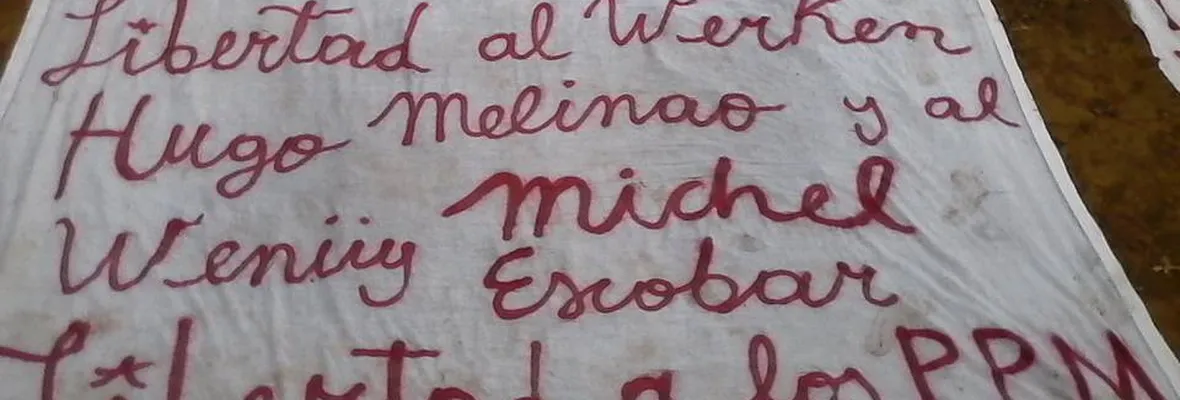 Libertad al Werken
Hugo Melinao y al
Wenüy Michel
Escobar
Libertad a los PPM